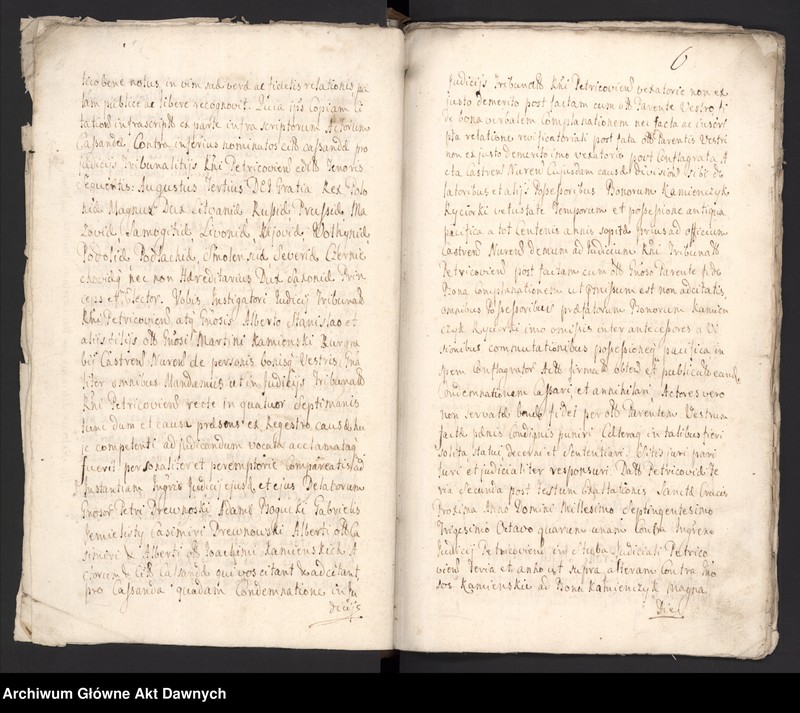 bene notus, in vim suæ veræ ac fidelis relationis, pa
lam publice ac libere recognovit. Quia ipse Copiam Ci
tationis infrascriptæ ex parte infra scriptorum Actorum
Cassandæ Contra inferius nominatos citæ cassandæ pro
Judicijs Tribunalitijs Rni Petricovien editæ Tenoris
Sequentis: Augustus Tertius DEI Gratia Rex Polo
niæ Magnus Dux Litvaniæ Russiæ, Prussiæ, Ma
zoviæ, Samogitiæ, Livoniæ, Kijoviæ, Wolhyniæ,
Podoliæ Podlachiæ, Smolensciæ Severiæ Czernie
choviæq nec non Hæreditarius Dux Saxoniæ Prin
ceps et Elector. Vobis Instigatori Judicij Tribunal
Rni Petricovien, atq Gnosis Alberto Stanislao et
alijs filijs olim Gnosi Martini Kamienski Burgra
bij Castren Nuren de personis bonisq Vestris, Gna
liter omnibus Mandamus ut in Judicijs Tribunal
Rni Petricovien recte in quatuor Septimanis
tunc dum et causa præsens ex Regestro causarum hu
ic competenti ad judicandum vocata acclamataq
fuerit personaliter et peremptorie Compareatis ad
Instantiam Ingris Judicij ejusq et ejus Delatorum
Gnosor Petri Drewnoski Adami Gabrielis
Casimiri Drewnowski Alberti olim Ca
simiri & Alberti olim Joachimi Kamienskich A
ctorum Citæ Cassandæ qui vos citant & adcitant,
pro Cassanda quadam Condemnatione in Ju
dicijs
6
Judicijs Tribunal Rni Petricovien vexatorie non ex
justo demerito post factam cum olim Parente Vestro fi
de bona verbalem Complanationem nec facta ac inscri
pta relatione revificatoriali post fata olim Parentis Vestri
non ex justo demerito imo vexatorio post conflagrata A
cta Castren Nuren Cujusdam causæ divisionis sibi de
latoribus et alijs Possessoribus Bonorum Kamienczyk
Ryciorki vetustate Temporum et possessione antiqua
pacifica a tot Centenis annis sopita prius ad officium
Castren Nuren demum ad Judicium Rni Tribunal
Petricovien post factam cum olim Gnoso Parente fide
Bona Complanationem ut præmissum est non adcitatis
omnibus Possessoribus præfatorum Bonorum Kamien
czyk Rycirki imo omissis inter antecessores
sionibus commutationibus possessioneq pacifica in
spem Conflagrator Act firmata obten et publicata eandem
Condemnationem Cassari, et annihilari, Actores vero
non servatæ bonæ fidei per olim Parentem Vestrum
factæ pœnis Condignis puniri Cæteraq in talibus fieri
solita statui, decerni et Sententiari. Sitis juri pari
turi et judicialiter responsuri. Dat Petricoviæ Fe
ria Secunda post Festum Exaltationis Sanctæ Crucis
Proxima Anno Domini Millesimo Septingentesimo
Trigesimo Octavo quarum unam Contra Ingrem
Judicij Petricovien in Judiciali Petrico
vien Feria et anno ut supra alteram Contra Gno
sos Kamienskie ad Bona Kamienczyk Magna
Die
Archiwum Główne Akt Dawnych